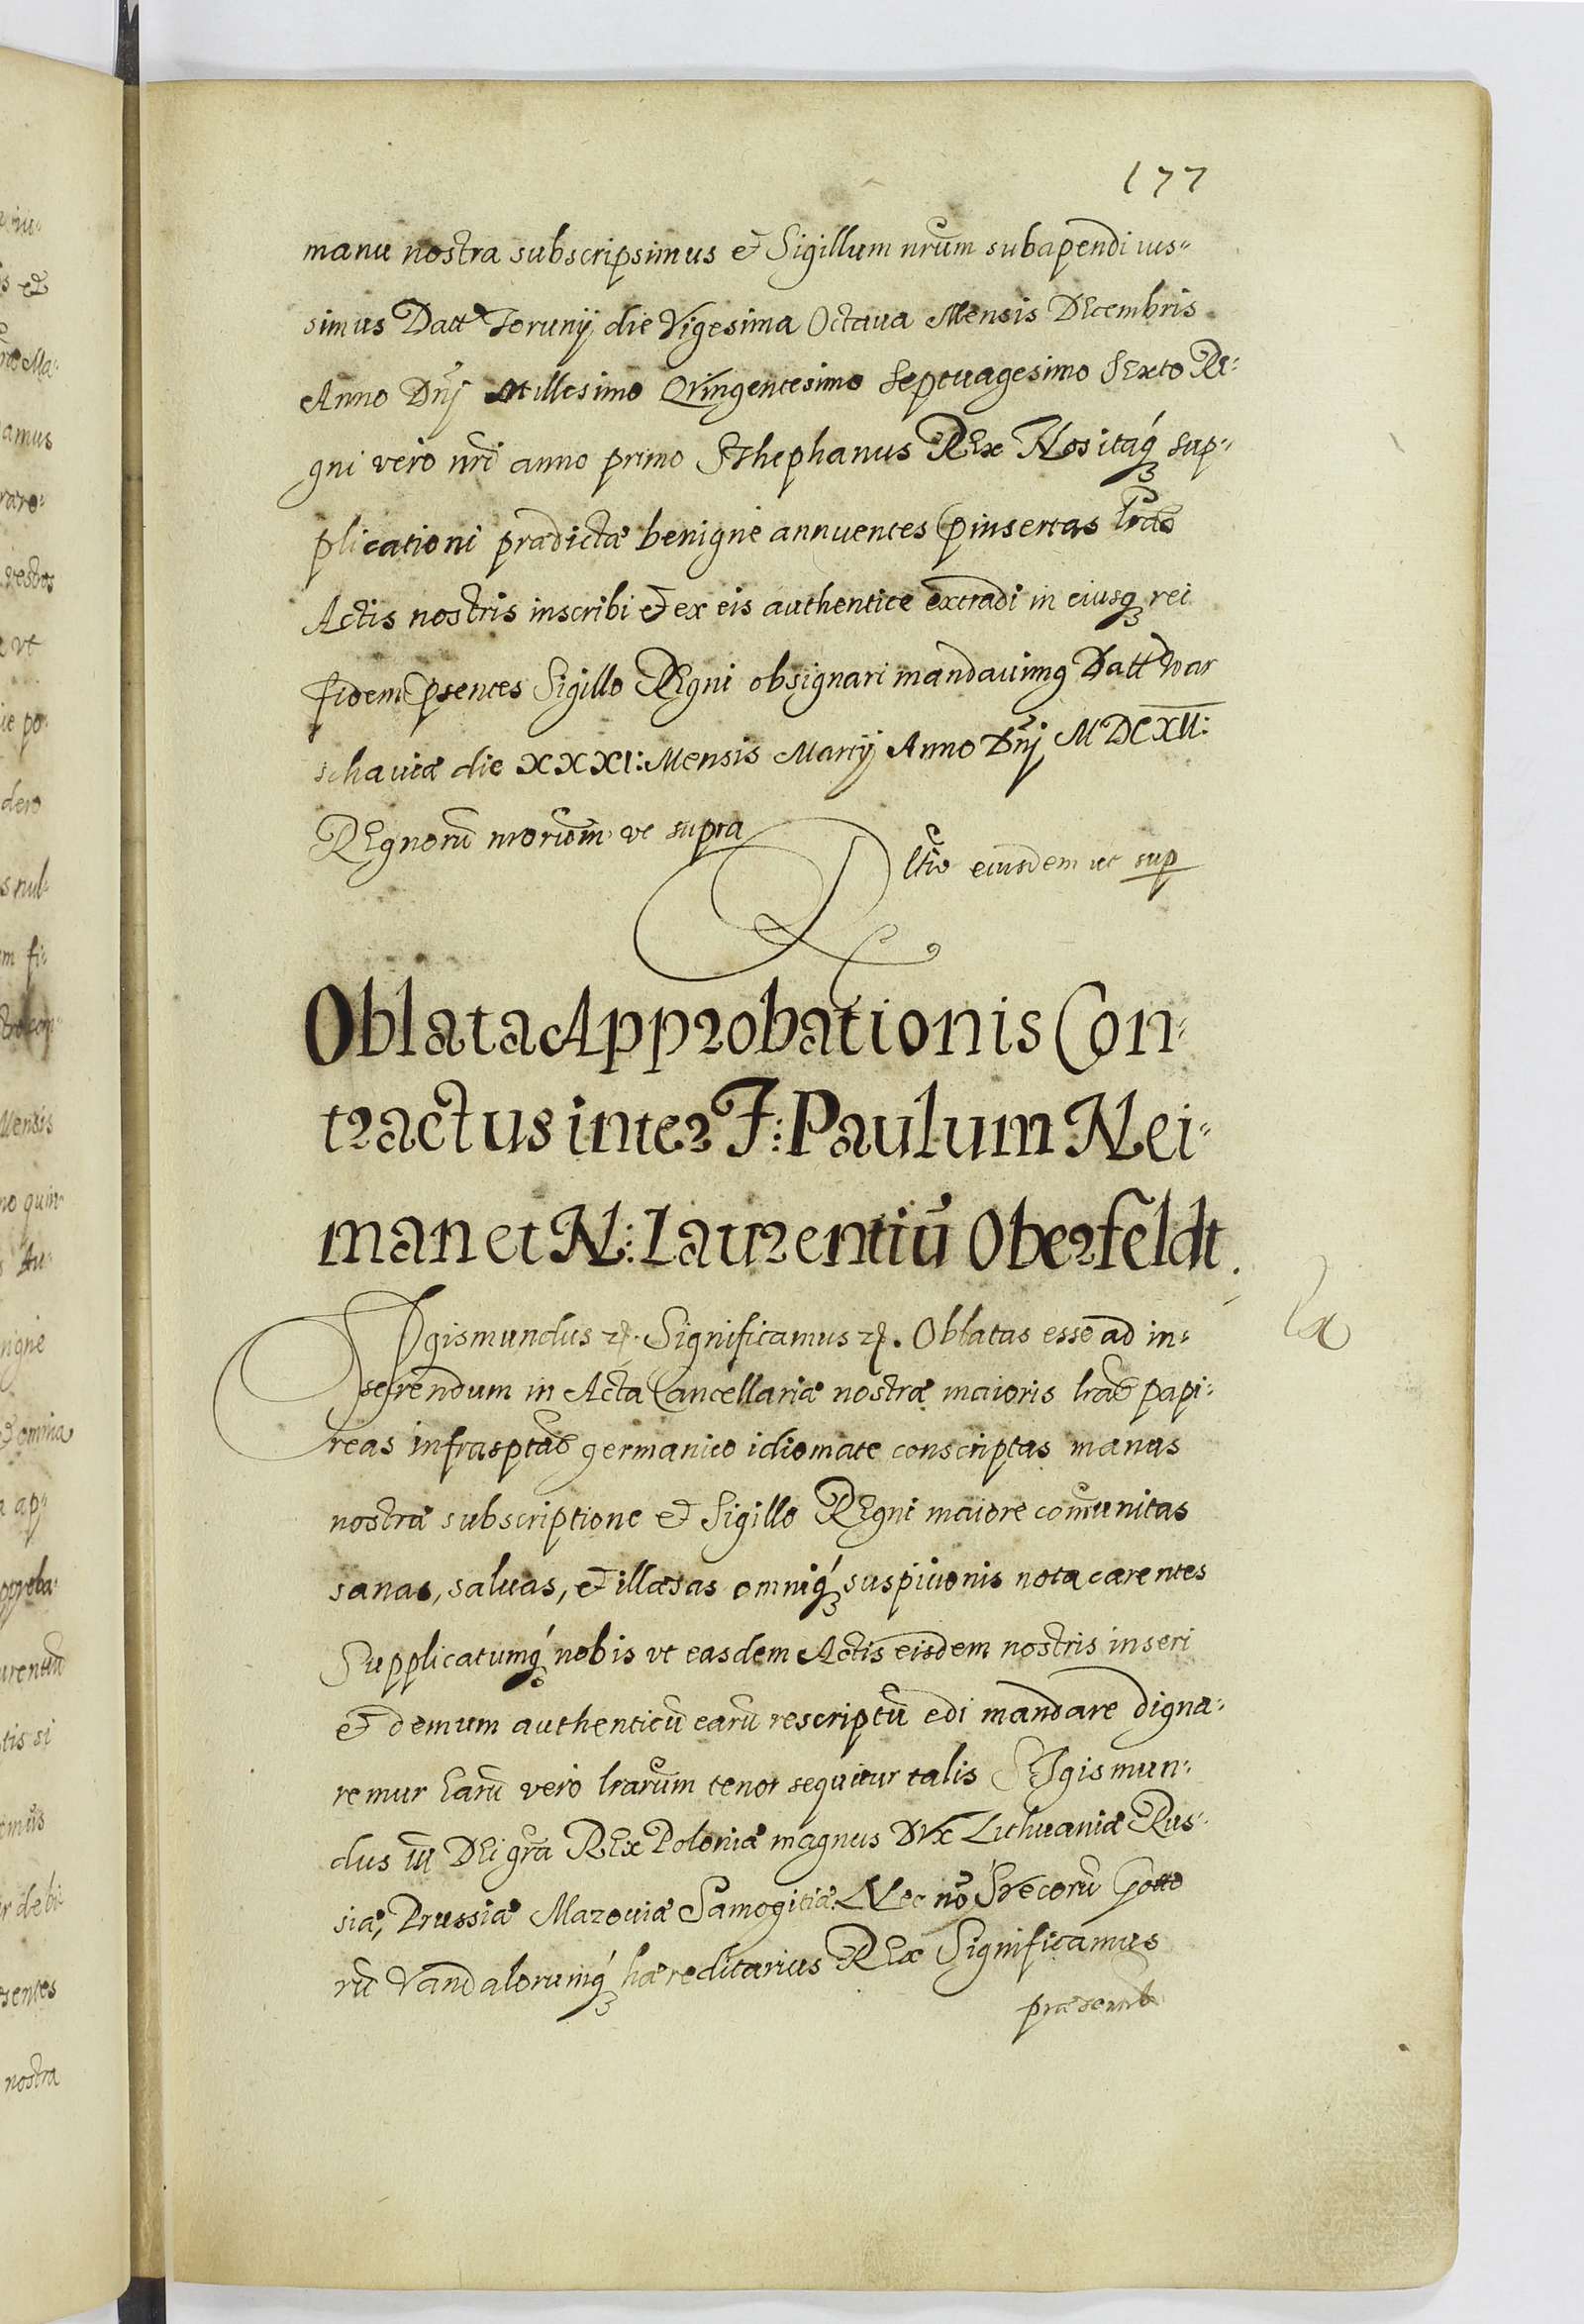 177
manu nostra subscripsimus et Sigillum nrum subapendi ius-
simus Datt Torunij die Vigesima Octaua Mensis Decembris
Anno Dnj Millesimo Qvingentesimo Septuagesimo Sexto Re-
gni vero nri anno primo Sthephanus REx Nos itaq sup-
plicationi prædictæ benigne annuentes pinsertas lras
Actis nostris inscribi et ex eis authentice extradi in eiusq rei
fidem psentes Sigillo REgni obsignari mandauimq Datt War
schauiæ die XXXI: Mensis Martij Anno Dnj MDCXII:
REgnoru nrorum ut supra
Rltio eiusdem ut sup
Oblata Approbationis Con-
tractus inter F: Paulum Nei-
man et N: Laurentiu Oberfeldt.
SIgismundus etc. Significamus etc. Oblatas esse ad in-
serendum in Acta Cancellariæ nostræ maioris lras papi-
reas infrasptas germanico idiomate conscriptas manus
nostræ subscriptione et Sigillo REgni maiore comunitas
sanas, saluas, et illæsas omniq suspicionis nota carentes
Supplicatumq nobis ut easdem Actis eisdem nostris inseri
et demum authenticu earu rescriptu edi mandare digna-
remur Earu vero lrarum tenor sequitur talis SIgismun-
dus III DEi gra REx Poloniæ magnus DVx Lithuaniæ Rus-
siæ, Prussiæ Mazouiæ Samogitiæ Nec no Svecoru Gotto
ru Vandalorumq hæreditarius REx Significamus
præsentib